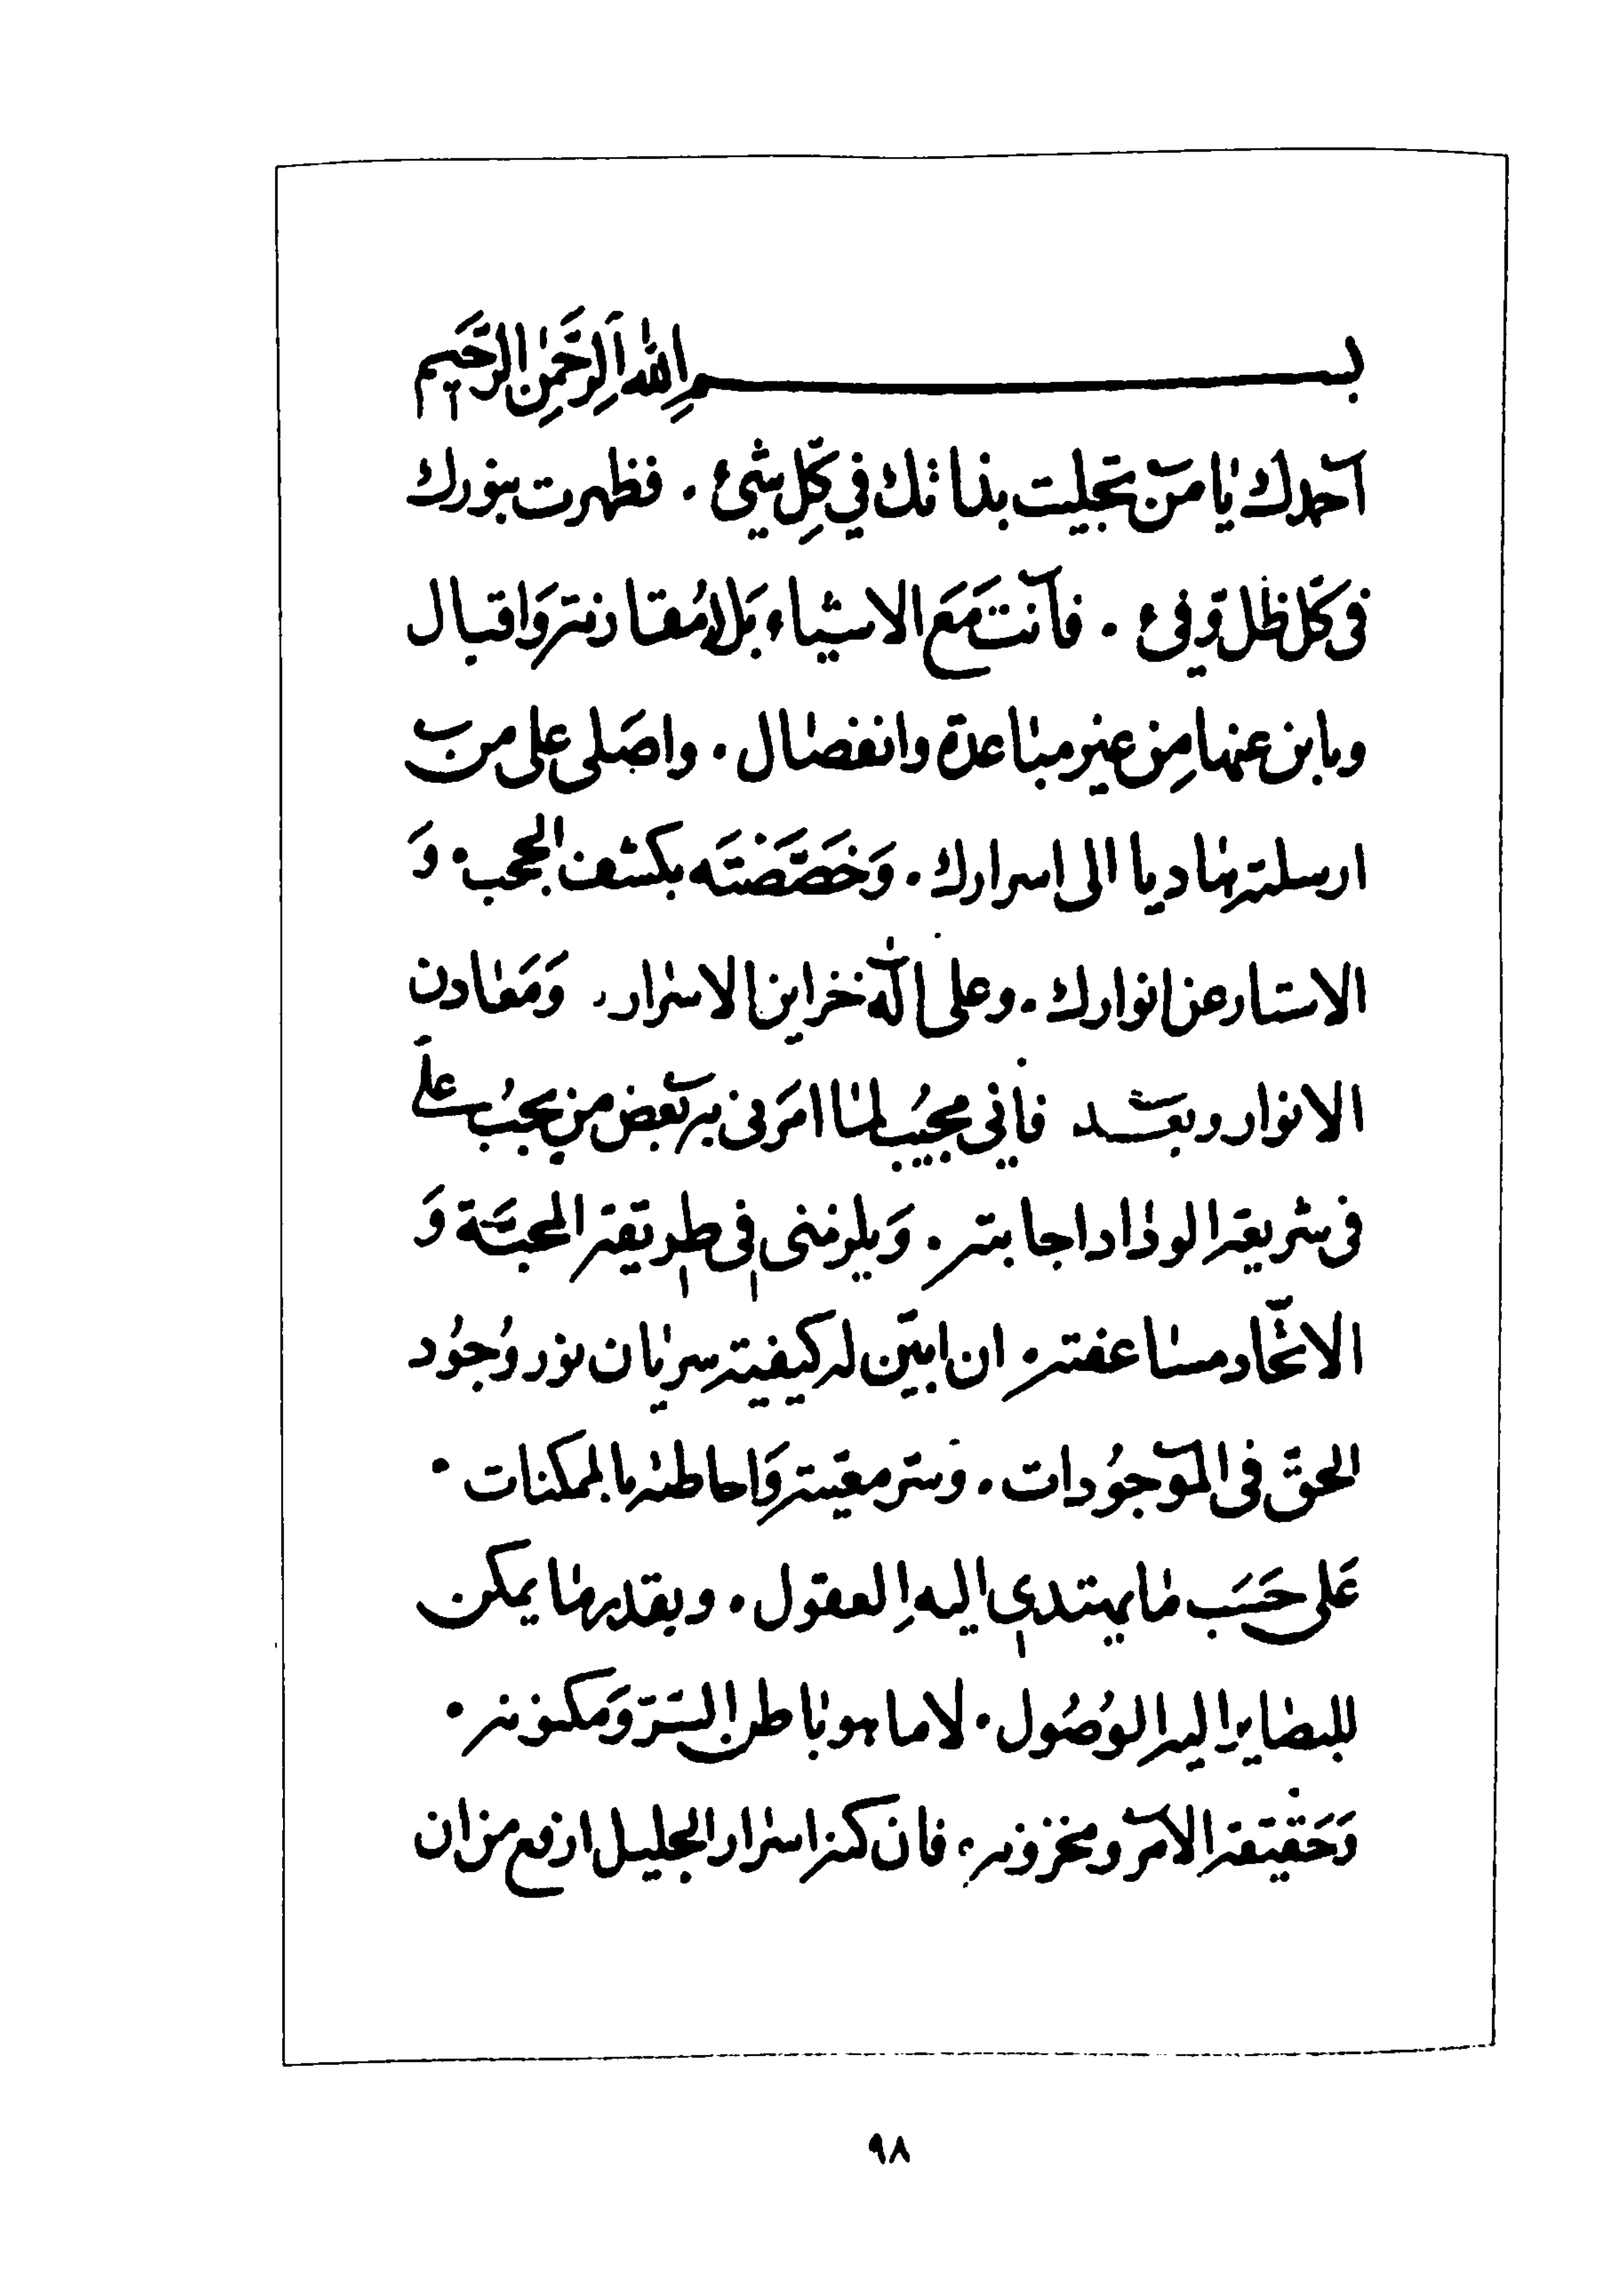 بسم الله الرحمن الرحيم
احمدك يا من تجليت بذاتك في كل شيئ . فظهرت بنورك
في كل ظل وفئ . فأنت مع الاشياء بلا مقارنة واقبال
وباين عنها من غير مباعدة وانفصال . واصلى على من
ارسلته هاديا الى اسرارك . وَخصَّصْتَه بكشف الحجب . وَ
الاستار عن انوارك . وعلى آله خزاين الاسرار . وَمَعادن
الانوار وبعد فاني مجيب لما امرنى به بعض من يجب علىّ
في شريعة الوداد اجابته . وَيلزمنى في طريقة المحبّة وَ
الاتّحاد مساعفته . ان ابيّن له كيفية سريان نور وُجُود
الحقّ في الموجُودات . وسرّ معيّته وَاحاطته بالممكنات .
عَلى حَسَب ما يهتدي اليه العقول . وبقدر ما يمكن
للبصاير اليه الوُصُول . لا ما هو باطن السّرّ وَمكنونه .
وَحَقيقة الأمر ومخزونه . فان كنز اسرار الجليل ارفع من ان
٩٨